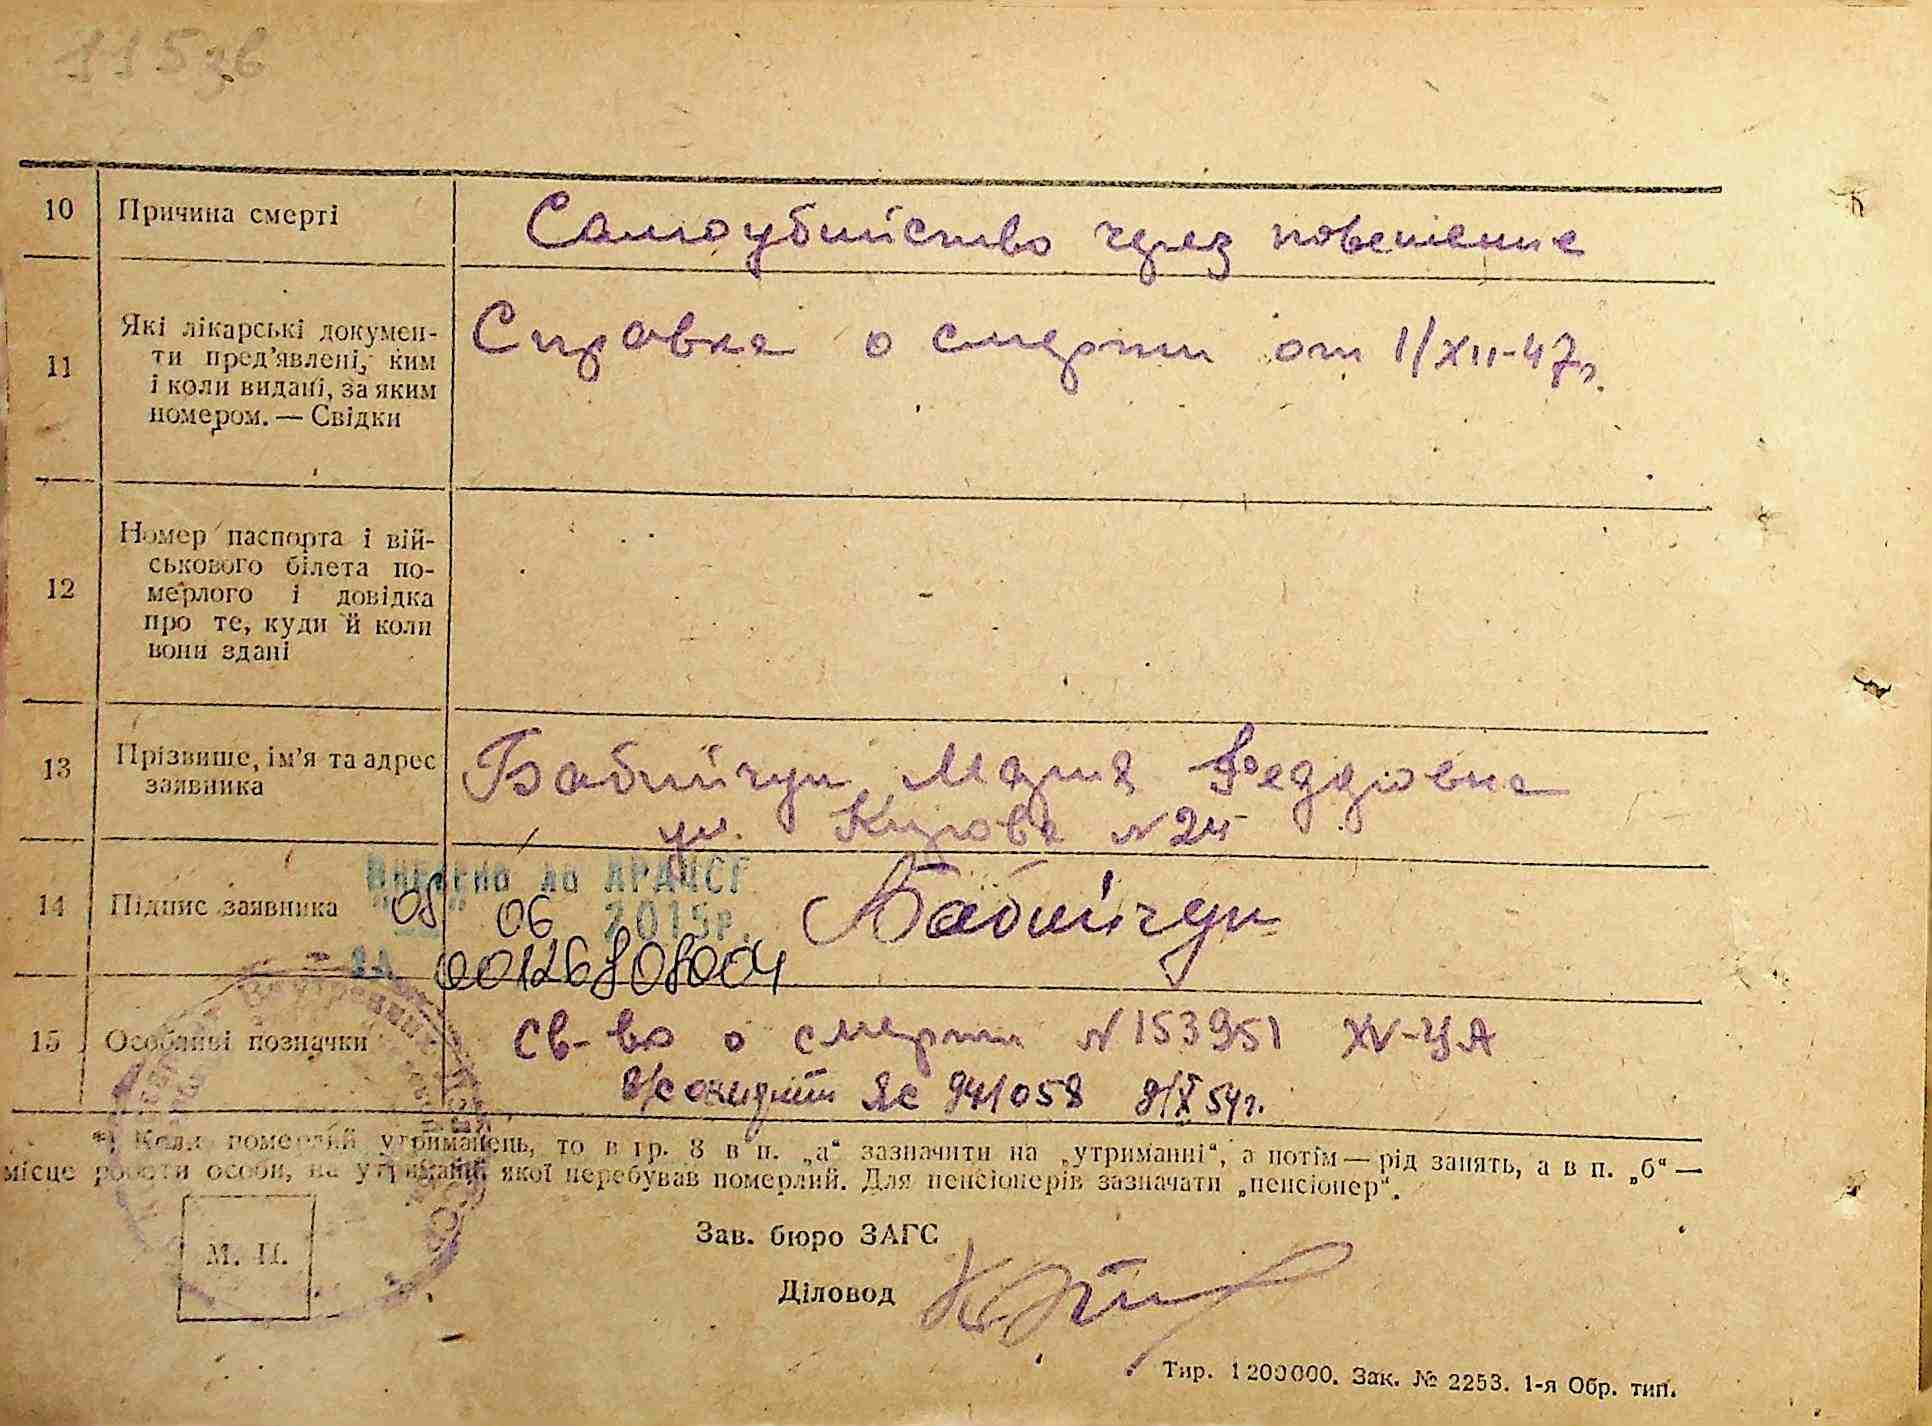 115зв
10 Причина смерті Самоубийство через повешение
11 Які лікарські докумен-
ти пред'явлені, ким
і коли видані, за яким
номером. — Свідки
Справка о смерти от 1/XII-47г.
12 Номер паспорта і вій-
ськового білета по-
мерлого і довідка
про те, куди й коли
вони здані
13 Прізвище, ім'я та адрес
заявника
Бабийчук Мария Федоровна
ул. Кирова №24
Внесено до ДРАЦСГ
"08" 06 2015р.
14 Підпис заявника Бабийчук
за 00126808004
15 Особливі позначки Св-во о смерти №153951 XV-ЦА
941058 9/X 54г.
*) Коли померлий утриманець, то в гр. 8 в п. „а“ зазначити на „утриманні“, а потім — рід занять, а в п. „б“ —
місце роботи особи, на утриманні якої перебував померлий. Для пенсіонерів зазначати „пенсіонер“.
М. П.
Зав. бюро ЗАГС
Діловод
Тир. 1200000. Зак. № 2253. 1-я Обр. тип.